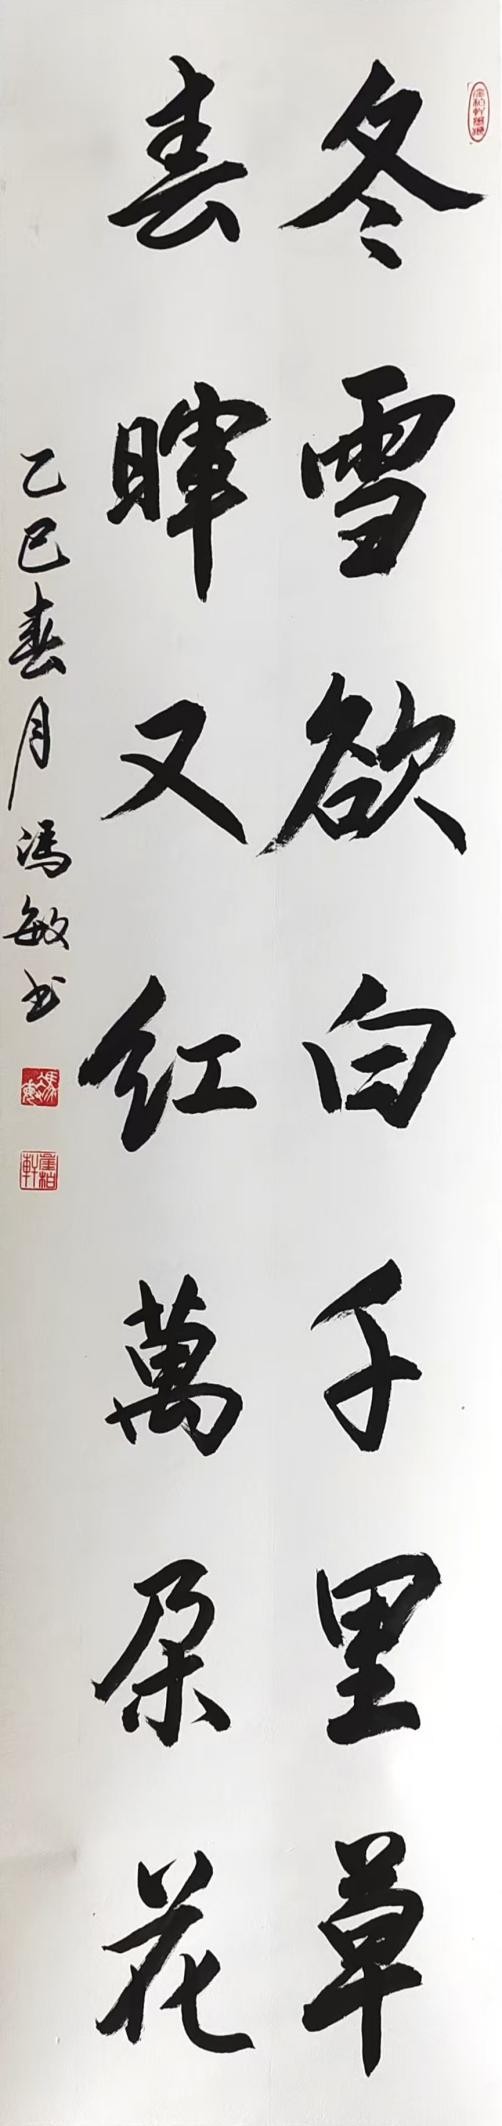 冬雪欲白千里草
春暉又红萬朵花
乙巳春月冯敏书